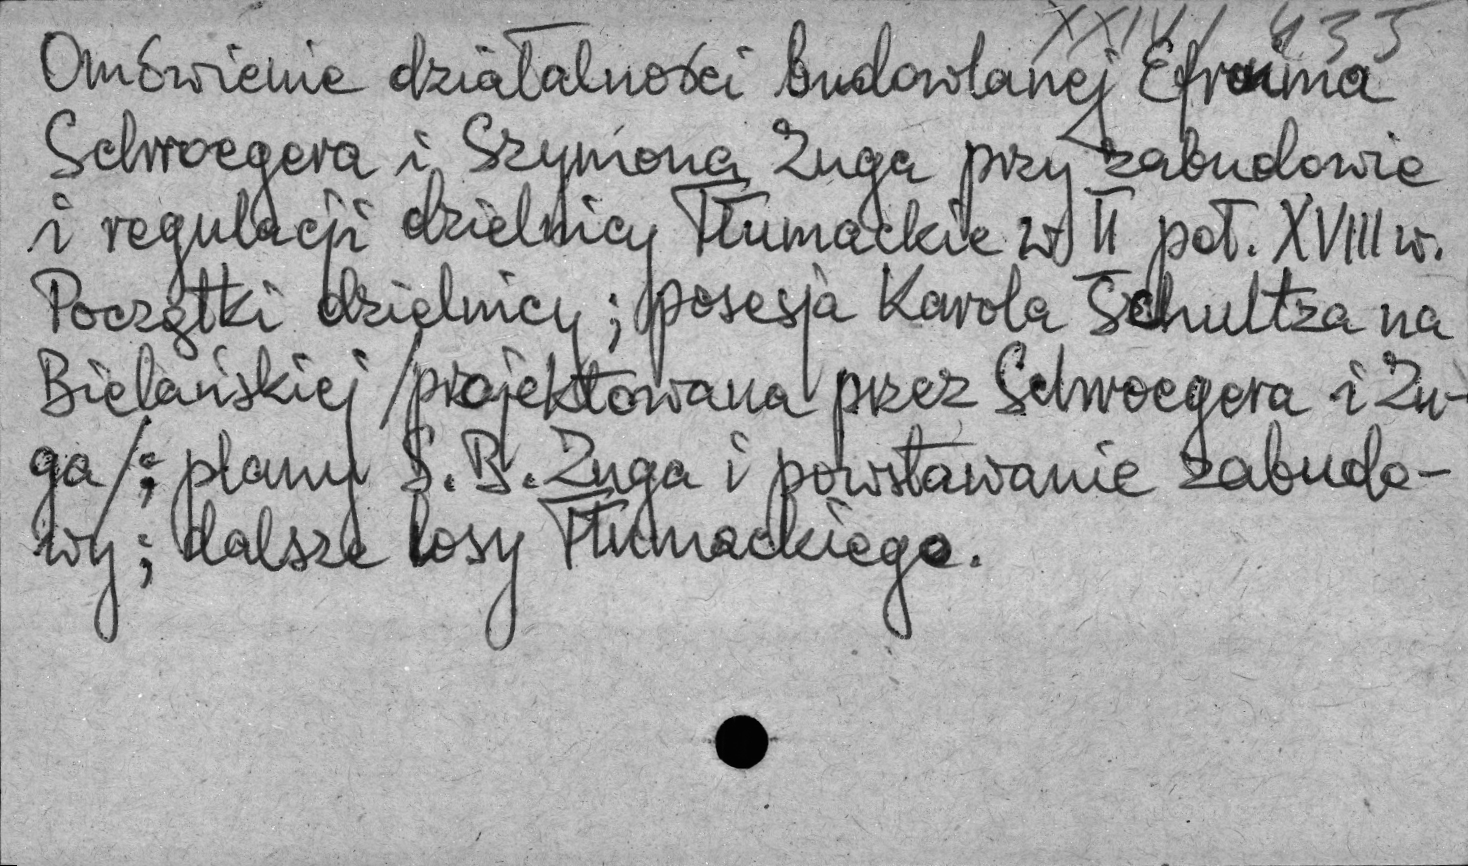 XXIV/435
Omówienie działalności budowlanej Efraima
Schroegera i Szymona Zuga przy zabudowie
i regulacji dzielnicy Tłumackie w II poł. XVIII w.
Początki dzielnicy; posesja Karola Schultza na
Bielańskiej /projektowana przez Schroegera i Zu-
ga/; plany S.B. Zuga i powstawanie zabudo-
wy; dalsze losy Tłumackiego.